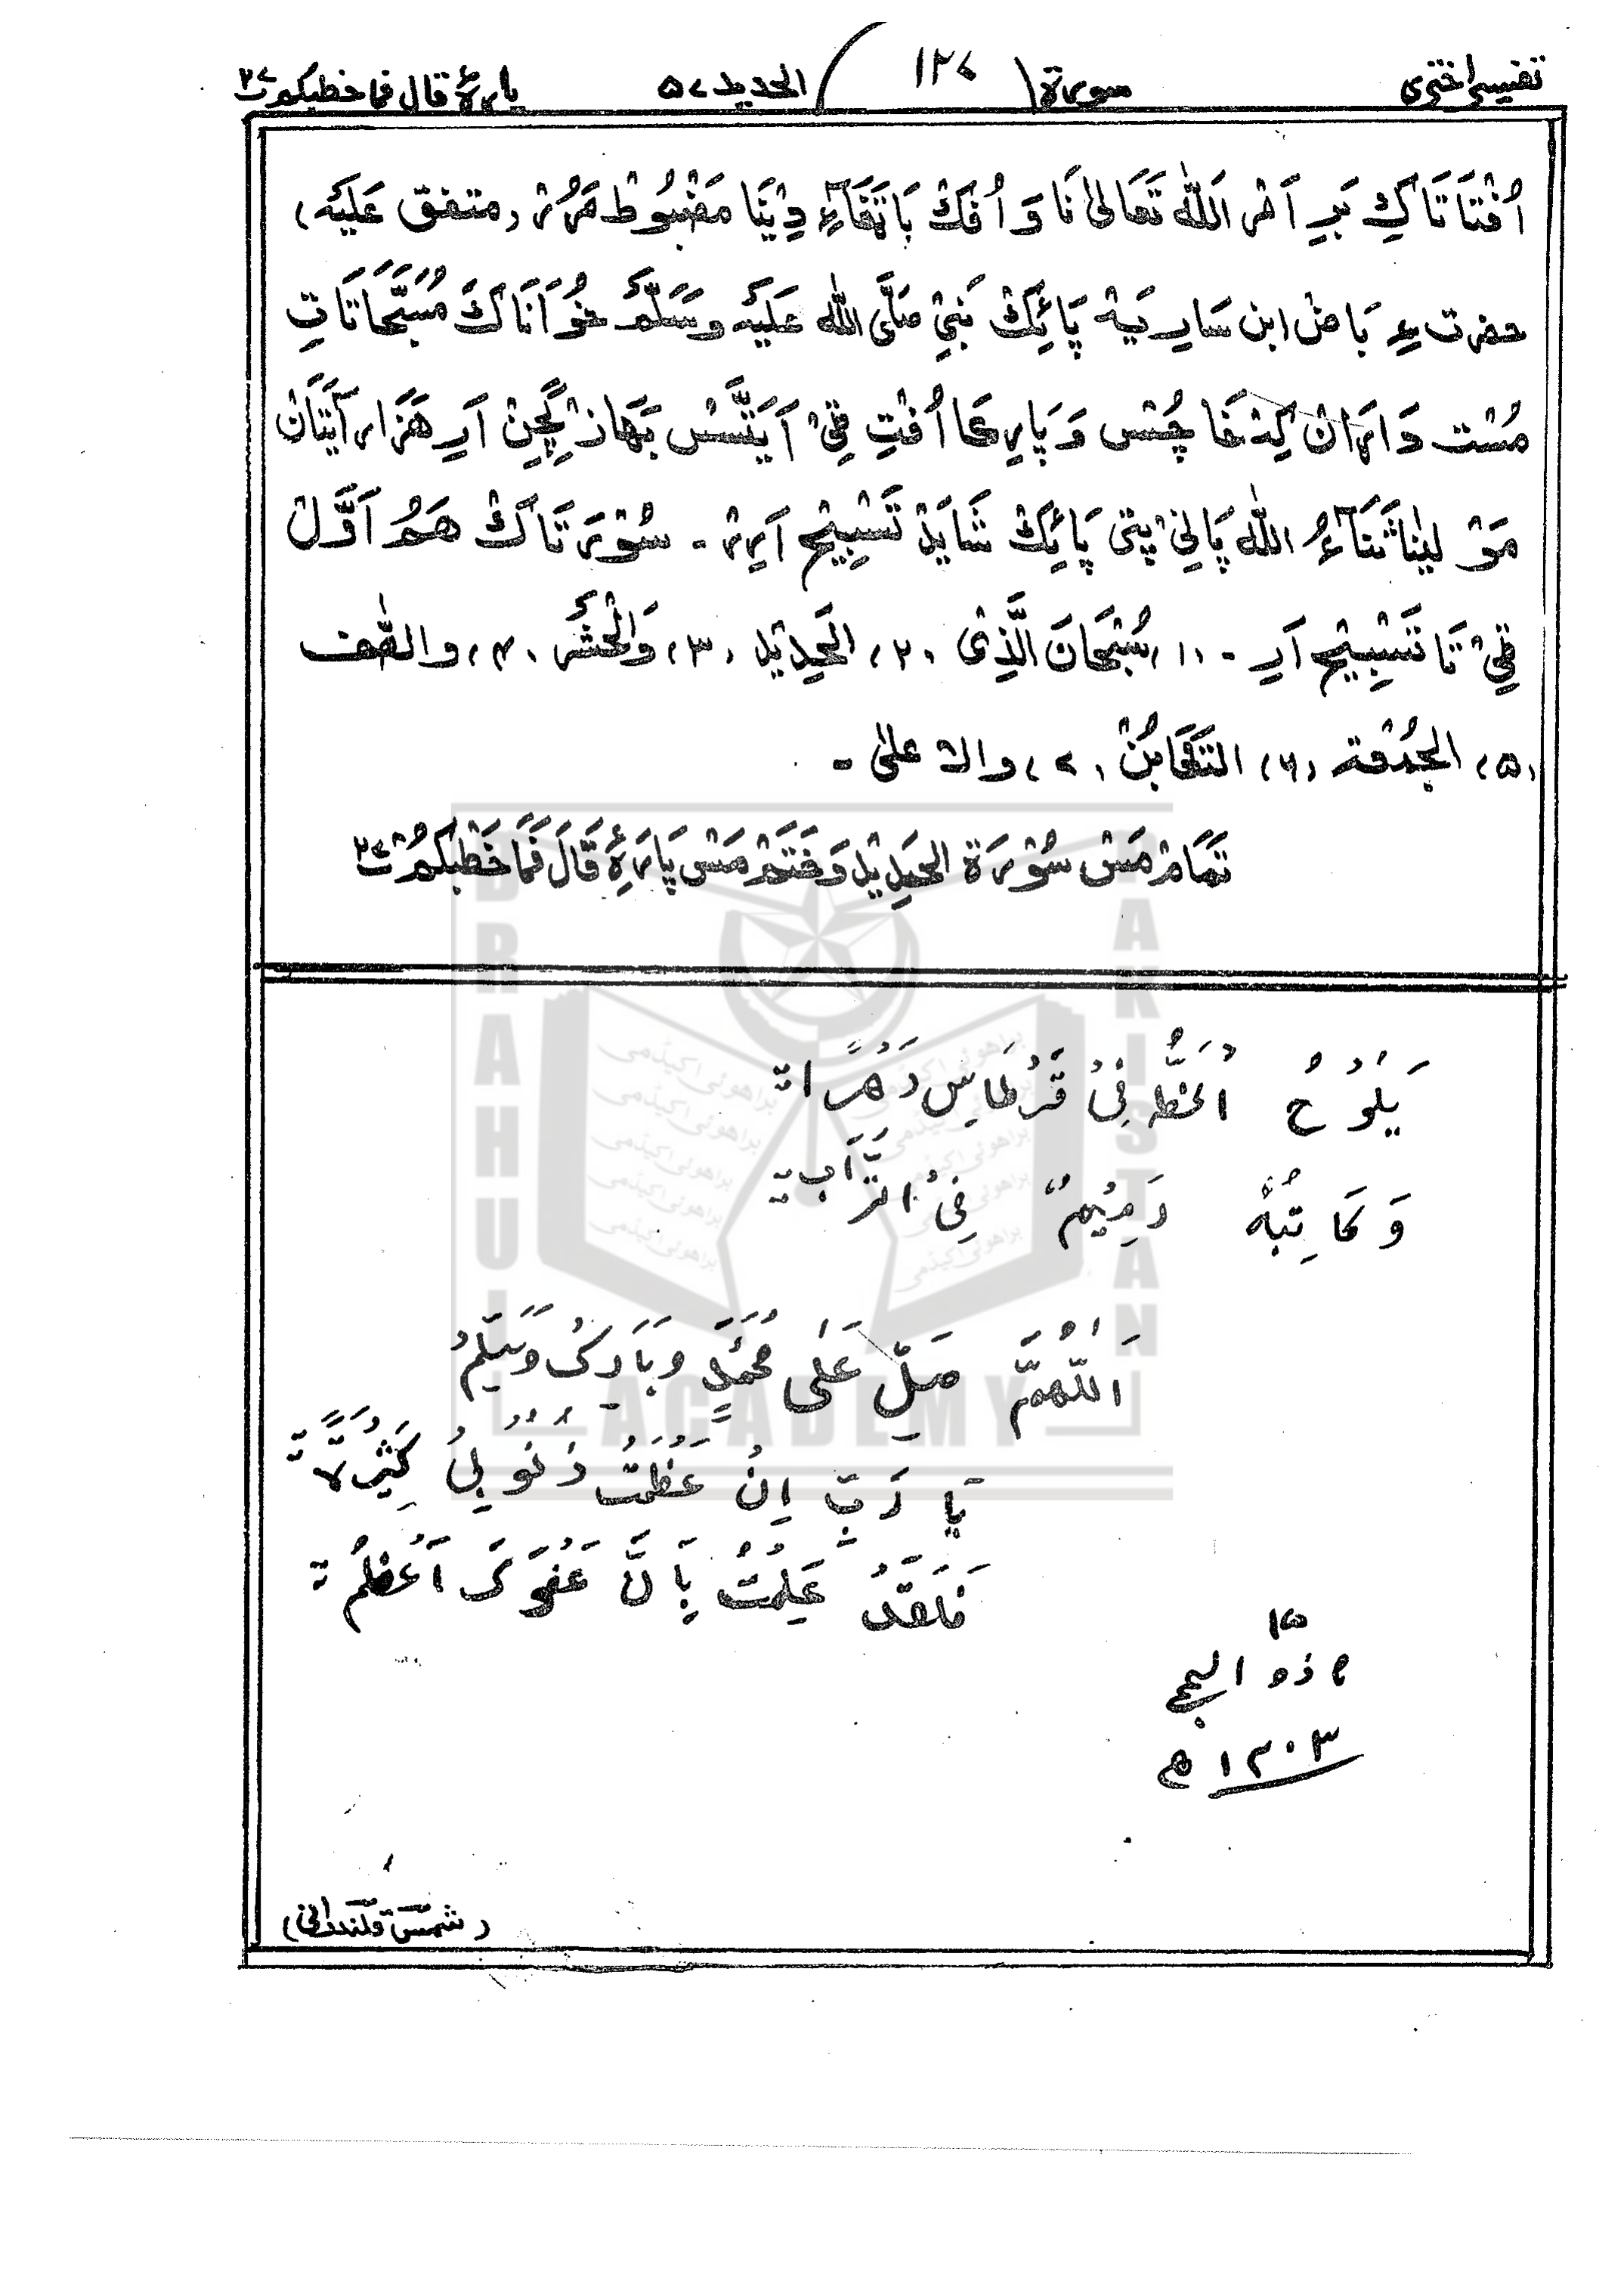 تفسیر اختری سورة ۱۲۷ الحدید ۵۷ پارۂ قال فما خطبکم ۲۷
اُفْتَا تَاکِ بَرِ اَمْر اَللّٰه تَعَالیٰ نَا وَ اُفْکْ بَا تَقَاءِ دِیْنَا مَضْبُوْط مَرُرْ (متفق عَلَیْه)
حضرت عِرْبَاض ابن سَارِیَة پَائِکْ نَبِیْ صَلَّی اللّٰه عَلَیْه وَسَلَّمْ خُوْانَاکَ مُسَبَّحَاتَاتِ
مُسْت دَا رَانْ کِهْ خَاچِسْ وَ پَارِ کَا اُفْتِ فِیْ اَیَتَسْ بَهَازْ گِچِیْن اَرِ هَزَار آیَتَانْ
مَوْلینَا ثَنَاءُ اللّٰه پَانِیْ پتی پَائِکْ شَایَدْ تَسْبِیْح اَرِیْر ۔ سُوْرَتَاکْ هَمُ اَوَّلْ
فِیْ تَا تَسْبِیْح اَرِ ۔ (۱) سُبْحَانَ الَّذِی (۲) الحَدِیْد (۳) وَالْحَشْر (۴) والصّف
(۵) الجُمُعَة (۶) التَغَابُنْ (۷) والا علیٰ ۔
تَمَامْ مَسْ سُوْرَة الحَدِیْد وَ خَتَمْ مَسْ پَارَۂِ قَالَ فَمَا خَطْبُکُمْ ۲۷
BRAHUI ACADEMY PAKISTAN
براهوئی اکیڈمی
یَلُوْحُ الْخَطُّ فِیْ قَرْطَاسِ دَهْرًا
وَ کَاتِبُهٗ رَمِیْمٌ فِی التُّرَابِ
اَللّٰهُمَّ صَلِّ عَلٰی مُحَمَّدٍ وَ بَارِکْ وَسَلِّمْ
یَا رَبِّ اِنْ عَظُمَتْ ذُنُوْبِیْ کَثِیْرَةً
فَلَقَدْ عَلِمْتُ بِاَنَّ عَفْوَکَ اَعْظَمُ
۱۵
ذو الحج
۱۴۰۳ ھ
(شمس قلندرانی)